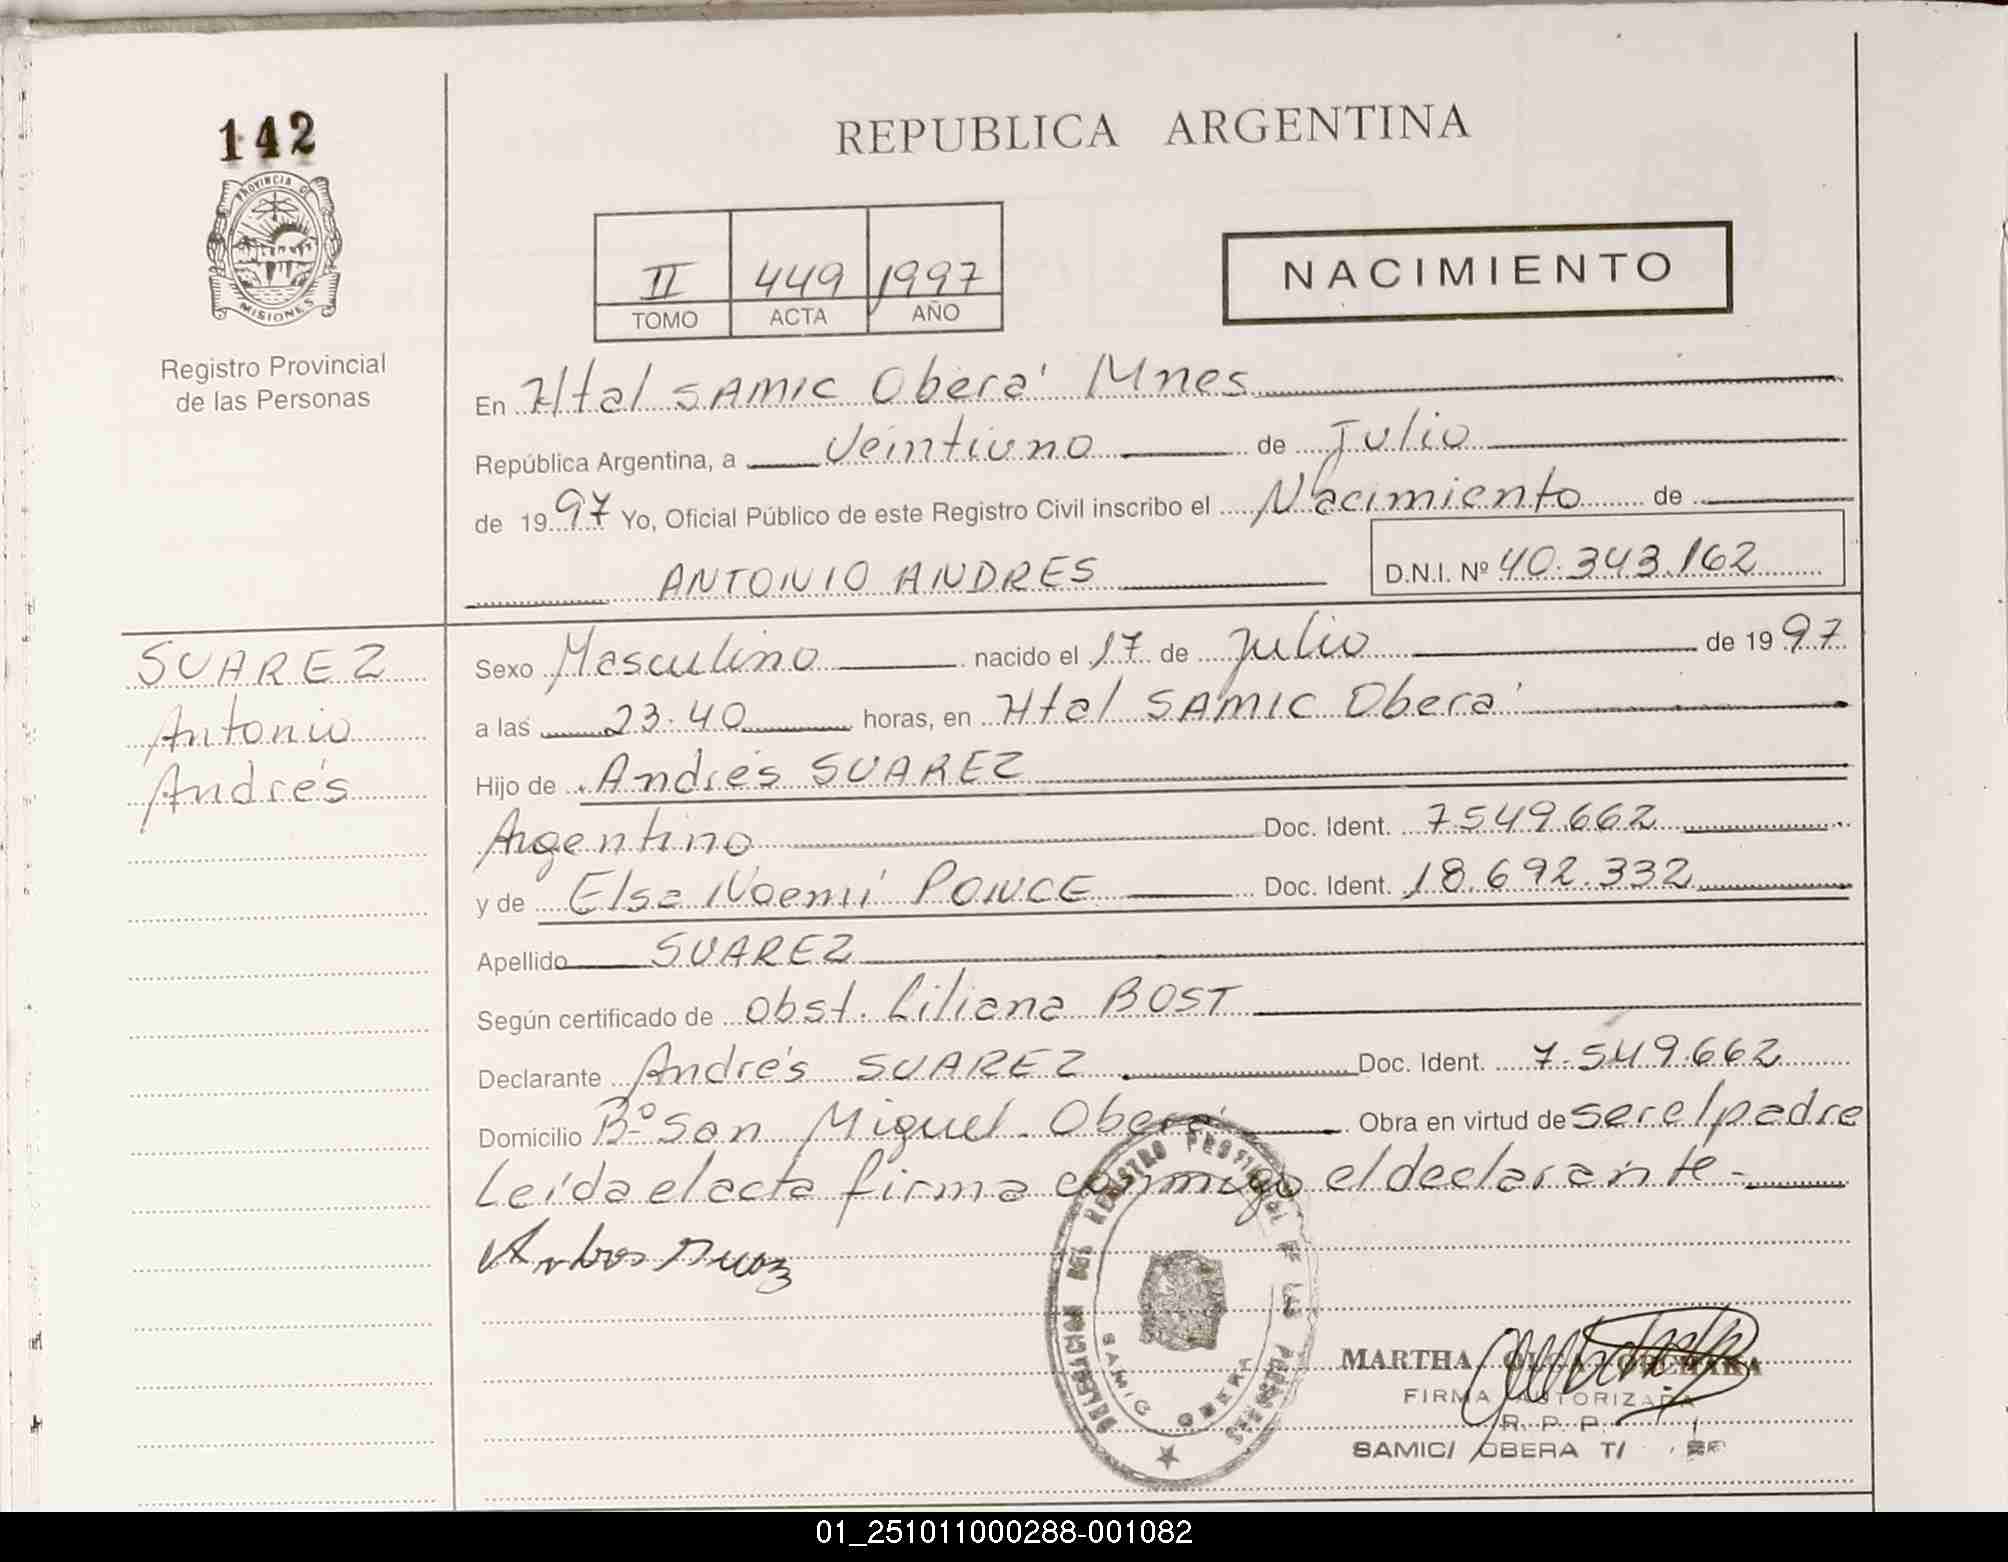 142
PROVINCIA DE
MISIONES
Registro Provincial
de las Personas
REPUBLICA ARGENTINA
II 449 1997
TOMO ACTA AÑO
NACIMIENTO
En Htal SAMIC Oberá Mnes
República Argentina, a Veintiuno de Julio
de 1997 Yo, Oficial Público de este Registro Civil inscribo el Nacimiento de
ANTONIO ANDRES D.N.I. Nº 40.343.162
SUAREZ
Antonio
Andrés
Sexo Masculino nacido el 17 de Julio de 1997
a las 23.40 horas, en Htal SAMIC Oberá
Hijo de Andrés SUAREZ
Argentino Doc. Ident. 7549.662
y de Elsa Noemí PONCE Doc. Ident. 18.692.332
Apellido SUAREZ
Según certificado de Obst. Liliana BOST
Declarante Andrés SUAREZ Doc. Ident. 7.549.662
Domicilio Bº San Miguel Oberá Obra en virtud de ser el padre
Leída el acta firma conmigo el declarante-
DELEGACION DEL REGISTRO PROVINCIAL DE LAS PERSONAS
SAMIC OBERA
MARTHA OLGA
FIRMA AUTORIZADA
R. P. P.
SAMIC/ OBERA T/
01_251011000288-001082